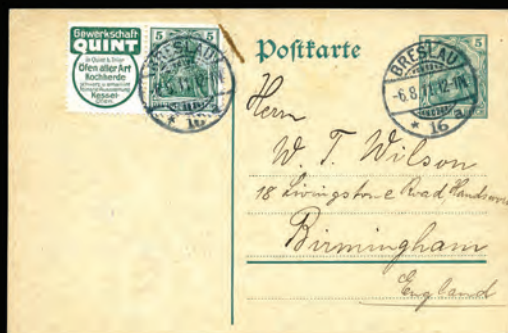 Gewerkschaft
QUINT
Öfen aller Art
Kochherde
Kessel-
5 5
BRESLAU
-6.8.11.12-1N.
* 16 a
Postkarte
5
BRESLAU
-6.8.11.12-1N.
* 16 a
Herrn
W. T. Wilson
18 Livingstone Road, Handsworth
Birmingham
England